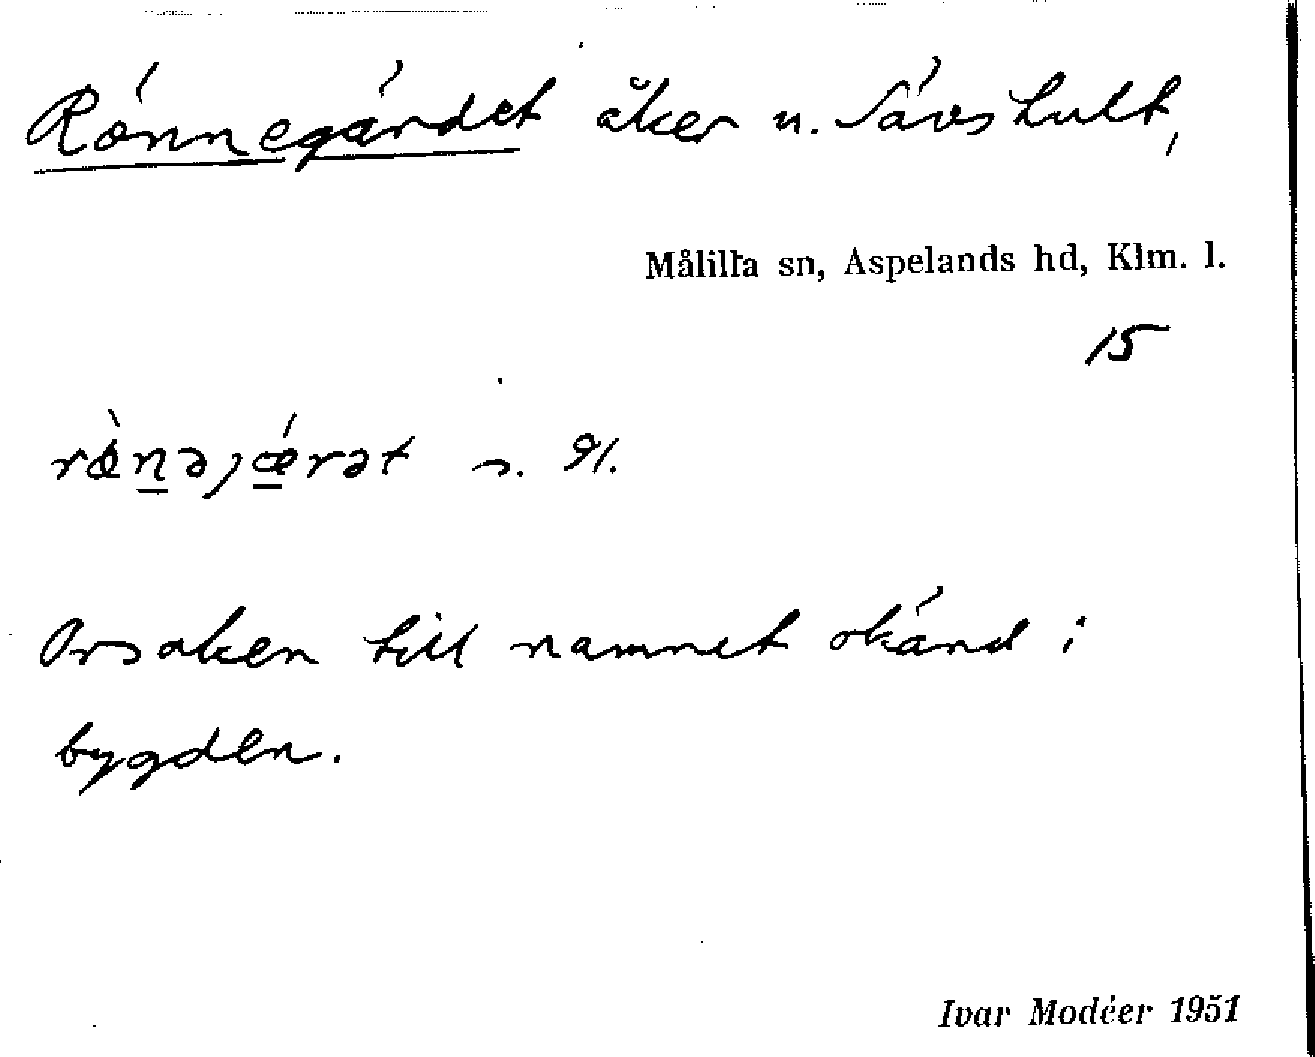 Rönnegärdet åker u. Sävshult,
Målilla sn, Aspelands hd, Klm. l.
15
rø̀nəjǽrət n. 91.
Orsaken till namnet okänd i
bygden.
Ivar Modéer 1951